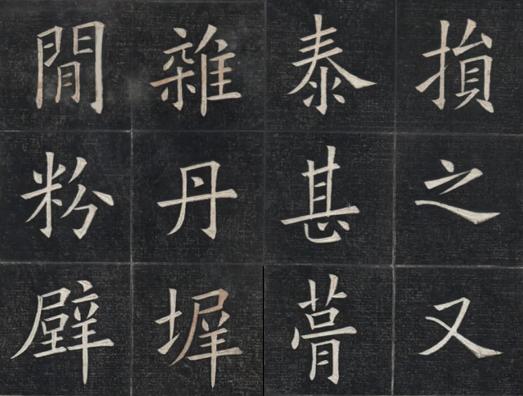 損之又
泰甚葺
雜丹墀
閒粉壁